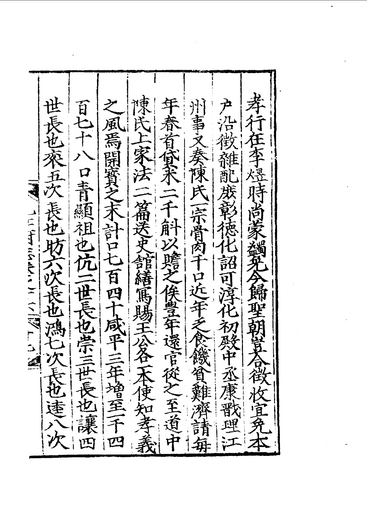 孝行在李煜時尚蒙蠲免今歸聖朝豈合徵收宜免本
户沿徵雜配廢彰德化詔可淳化初殿中丞康戬理江
州事又奏陳氏一宗骨肉千口近年乏食饑貧難濟請每
年春首貸米二千斛以贍之俟豐年還官從之至道中
陳氏上家法二篇送史館繕寫賜王公各一本使知孝義
之風焉開寶之末計口七百四十咸平三年增至千四
百七十八口青顯祖也伉二世長也崇三世長也讓四
世長也衮五次長也昉六次長也鴻七次長也逵八次